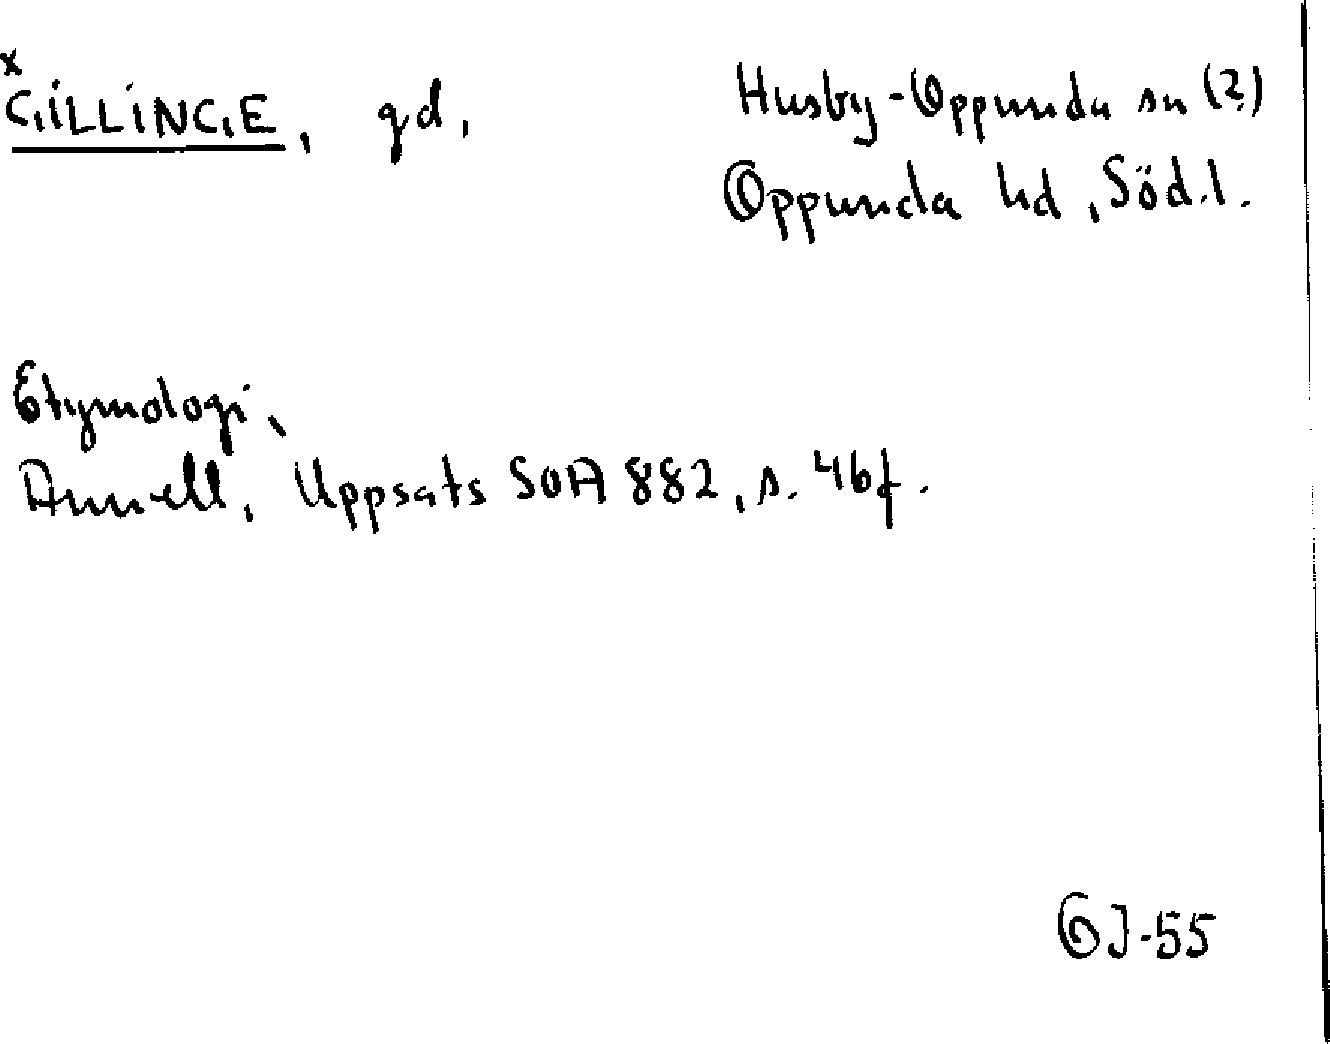 x
GILLINGE, gd,
Husby-Oppunda sn (?)
Oppunda hd, Söd.l.
Etymologi,
Annell, Uppsats SOA 882, s. 46f.
GJ-55